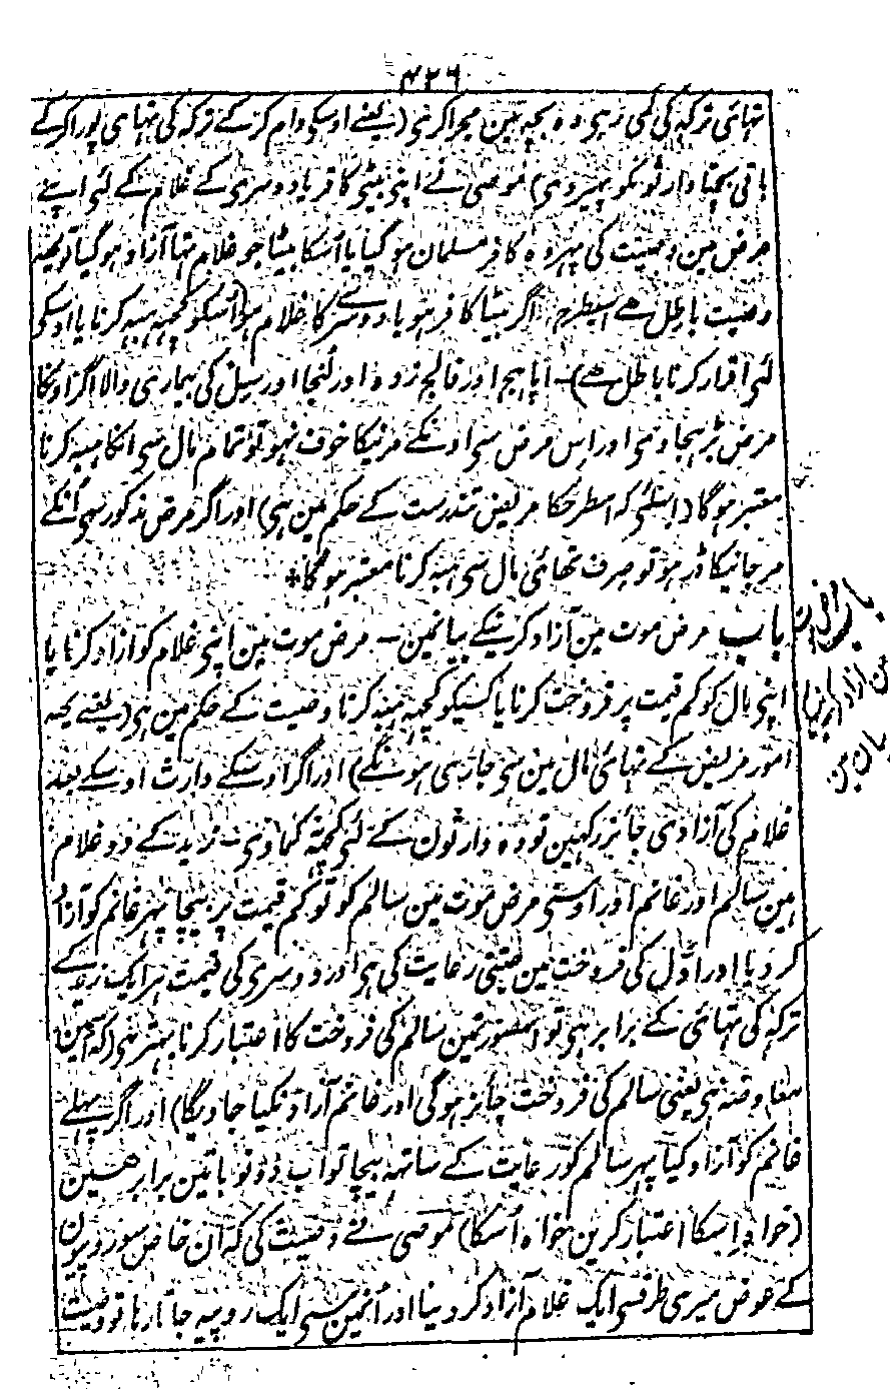 ۴۲۶
تہائی ترکہ کی کمی رہی وہ بچہ مین مجرا کرنی (یعنے اوسکی دام کرکے ترکہ کی تہائی پورا کرکے
باقی بچتا وارثونکو پہیر دی) موصی نے اپنی بیٹی کافر یا دوسری کے غلام کے لئی اپنے
مرض مین وصیت کی پہر وہ کافر مسلمان ہو گیا یا اُسکا بیٹا جو غلام تہا آزاد ہو گیا تو یہہ
وصیت باطل ہے اسیطرح اگر بیٹا کافر ہو یا دوسرے کا غلام ہو (اُسکو کچہہ ہبہ کرنا یا اوسکی
لئی اقرار کرنا باطل ہے)۔ اپاہج اور فالج زدہ اور لُنجا اور سِل کی بیماری والا اگر اونکا
مرض بڑہجاوی اور اِس مرض سی اونکے مرنیکا خوف نہو تو تمام مال سی انکا ہبہ کرنا
معتبر ہوگا (اسلئی کہ اسطرحکا مریض تندرست کے حکم مین ہی) اور اگر مرض مذکور سی اُنکے
مرجانیکا ڈر ہو تو صرف تہائی مال سی ہبہ کرنا معتبر ہوگا*
باب مرض موت مین آزاد کرنیکے بیانمین۔ مرض موت مین اپنی غلام کو آزاد کرنا یا
اپنی مال کو کم قیمت پر فروخت کرنا یا کسیکو کچہہ ہبہ کرنا وصیت کے حکم مین ہی (یعنے یہہ
امور مریض کے تہائی مال مین سی جاری ہونگے) اور اگر اوسکے وارث اوسکے بعد
غلام کی آزادی جائز رکہین تو وہ وارثون کے لئی کچہہ کماوی زید کے دو غلام
ہین سالم اور غانم اور اوسنی مرض موت مین سالم کو تو کم قیمت پر بیچا پہر غانم کو آزاد
کر دیا اور اوّل کی فروخت مین جتنی رعایت کی ہی اور دوسری کی قیمت ہر ایک زید کے
ترکہ کی تہائی کے برابر ہی تو اسصورتمین سالم کی فروخت کا اعتبار کرنا بہتر ہی (کہ اسمین
معاوضہ ہی یعنی سالم کی فروخت جائز ہوگی اور غانم آزاد نکیا جاویگا) اور اگر پہلے
غانم کو آزاد کیا پہر سالم کو رعایت کے ساتہہ بیچا تو اب دونو باتین برابر ہین
(خواہ اِسکا اعتبار کرین خواہ اُسکا) موصی نے وصیت کی کہ ان خاص سو روپیون
کے عوض میری طرفسی ایک غلام آزاد کر دینا اور اُنمین سی ایک روپیہ جاتا رہا تو وصیت
باب
مین آزاد کرنیکا
بیان مین